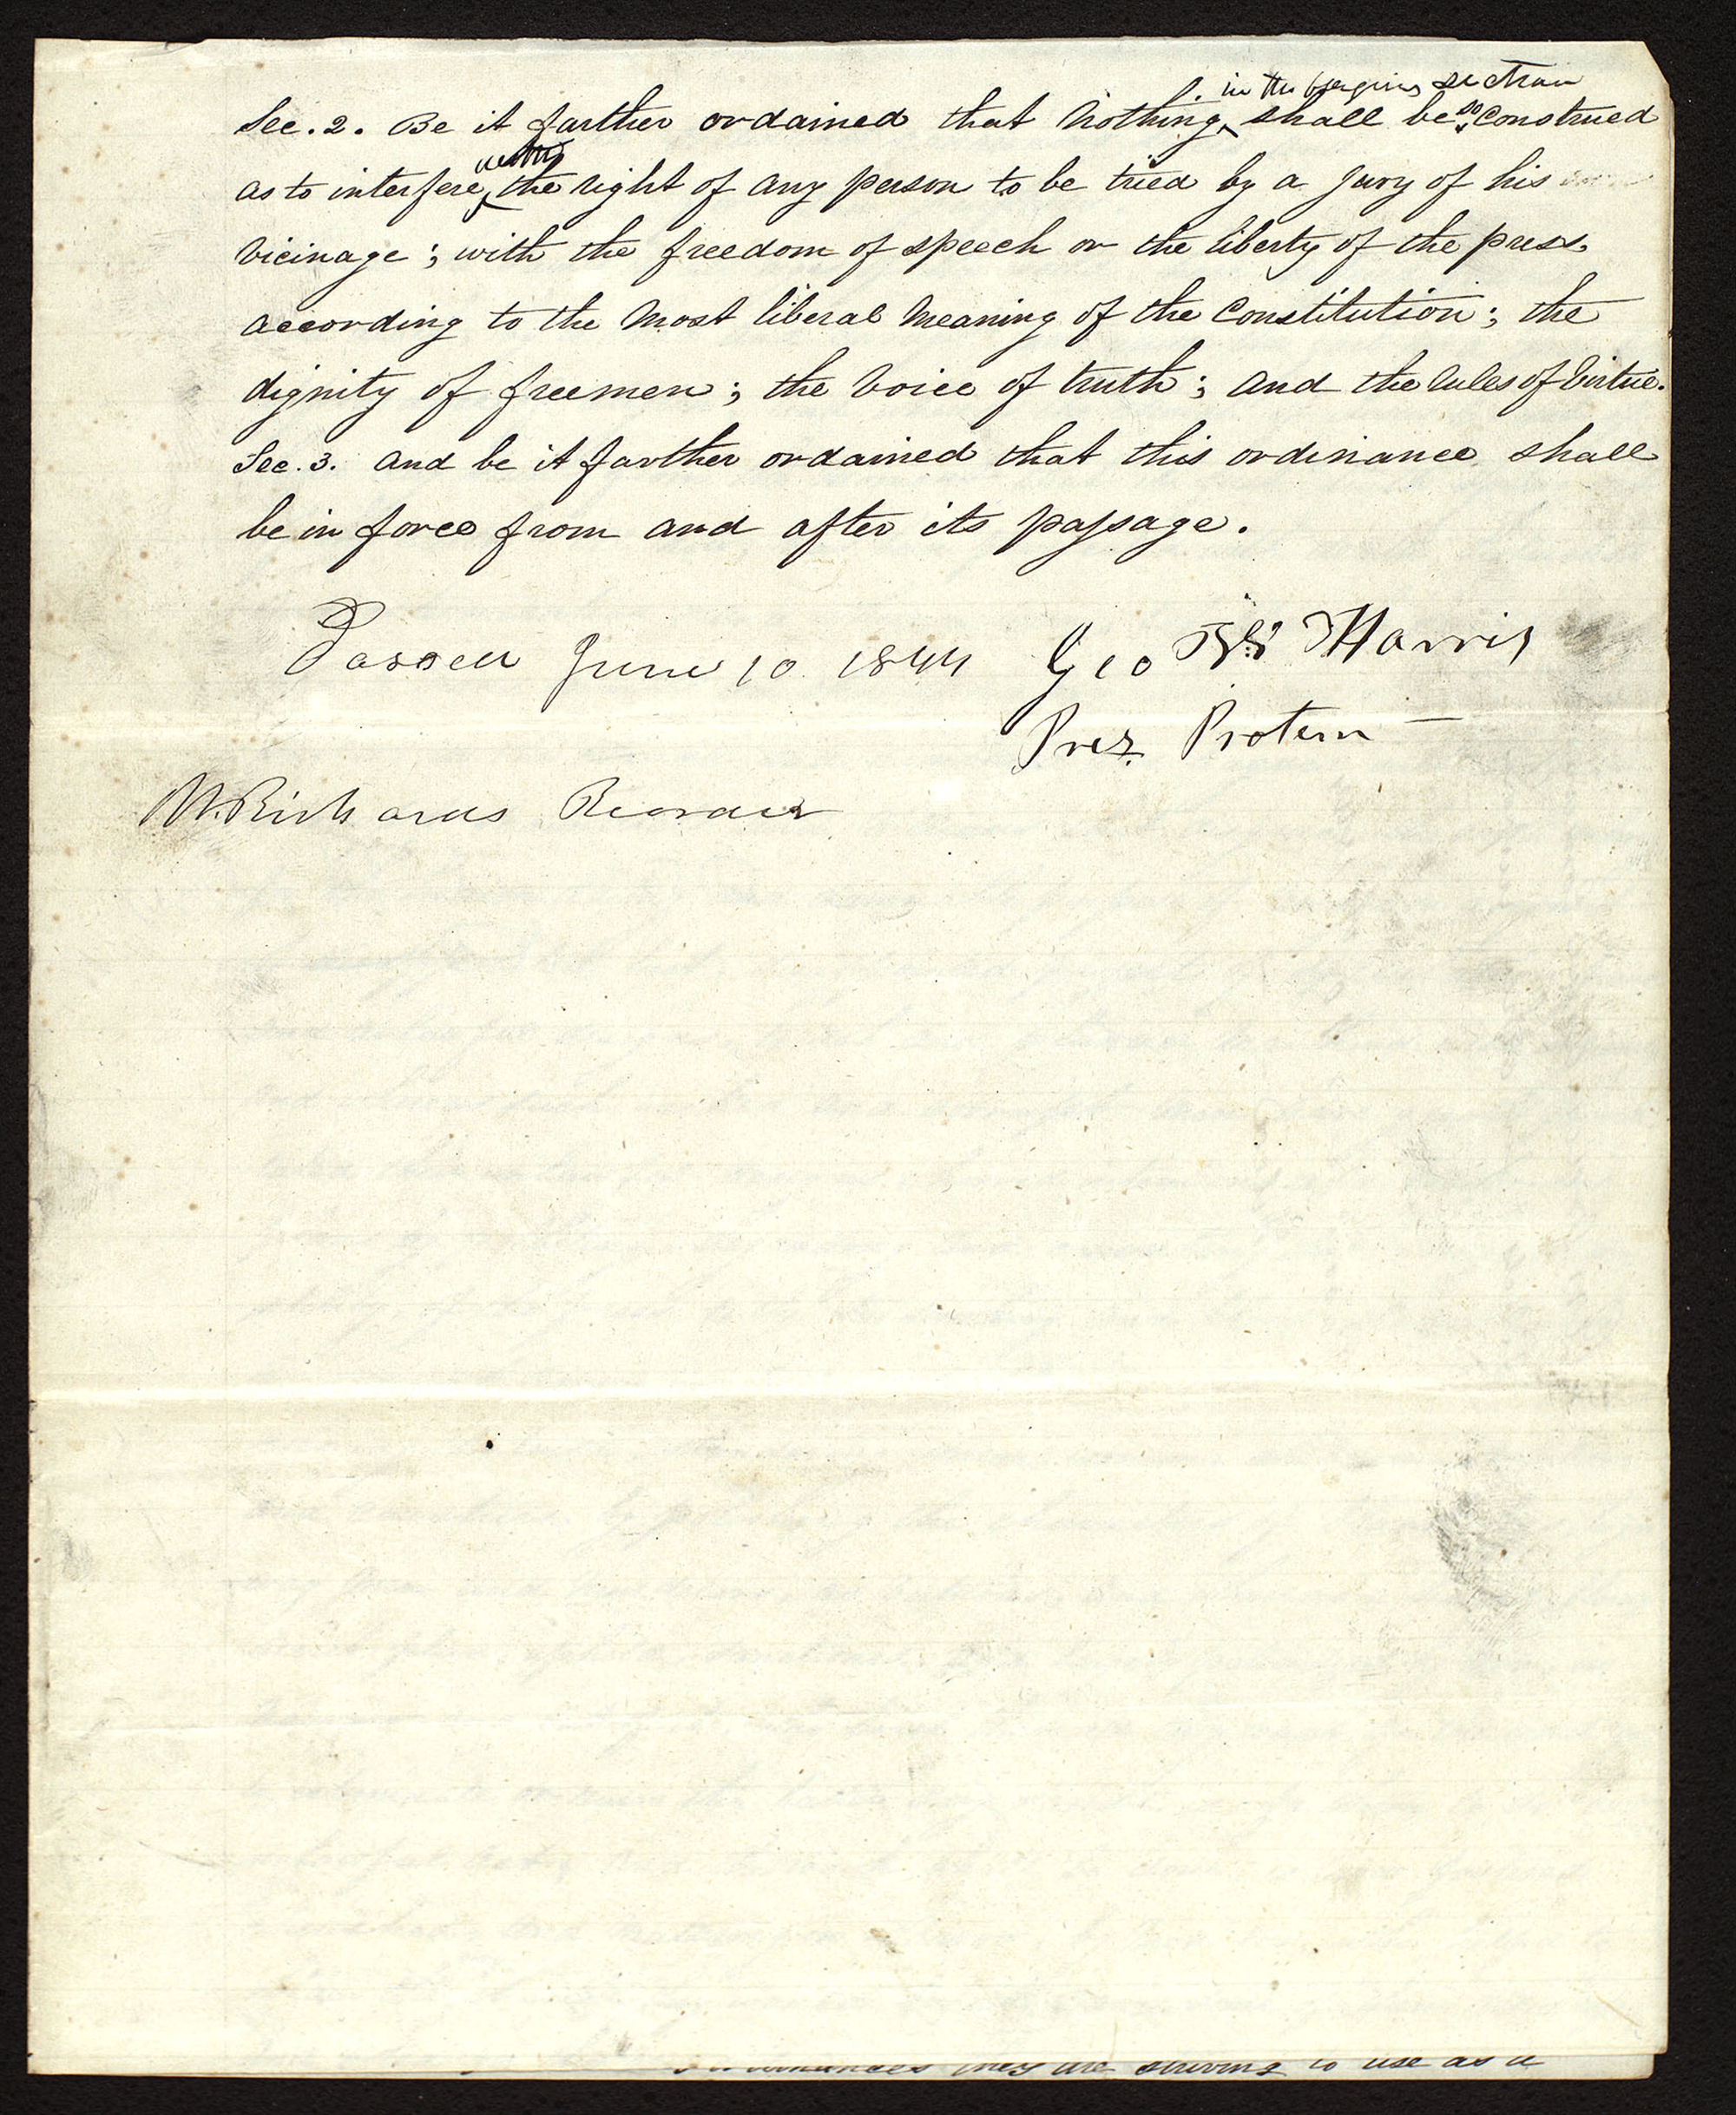 in the foregoing section
Sec. 2. Be it farther ordained that nothing shall be so construed
with
as to interfere the right of any person to be tried by a jury of his
vicinage; with the freedom of speech or the liberty of the press,
according to the most liberal meaning of the Constitution; the
dignity of freemen; the voice of truth; and the rules of virtue.
Sec. 3. And be it farther ordained that this ordinance shall
be in force from and after its passage.
Passed June 10. 1844 Geo W Harris
Pres. Protem
W. Richards Recorder
they are striving to use as a